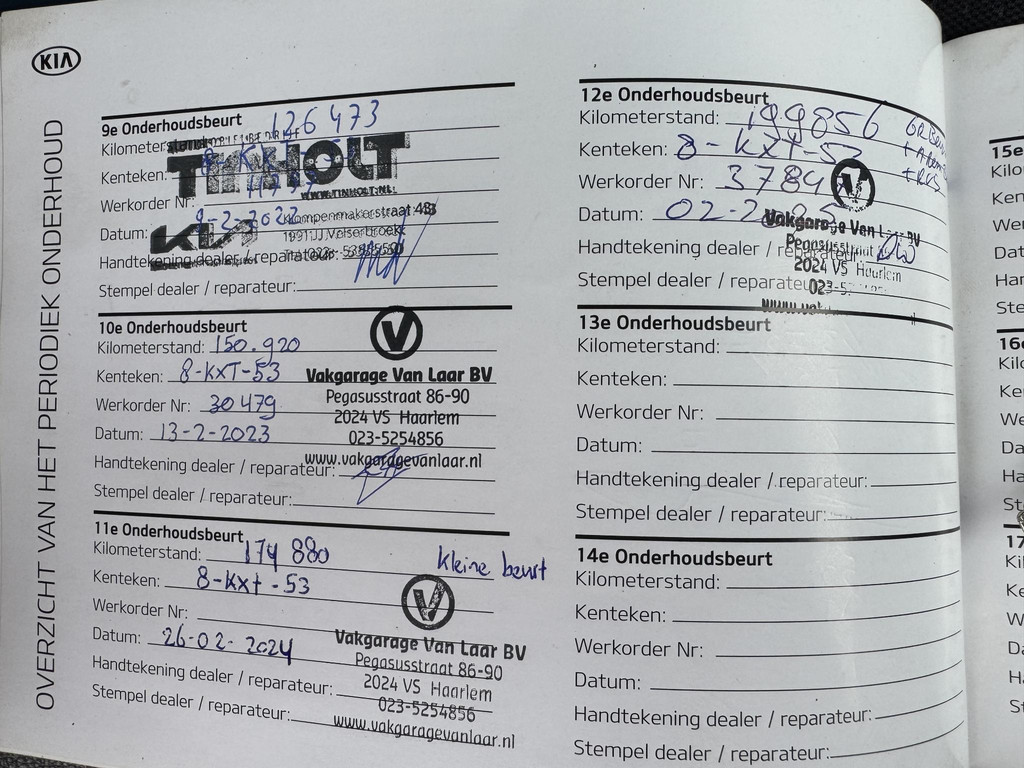 KIA
OVERZICHT VAN HET PERIODIEK ONDERHOUD
9e Onderhoudsbeurt
Kilometerstand: 126473
TINHOLT
Kenteken:
WWW.TINHOLT.NL
Werkorder Nr:
Kampenmakerstraat 43
Datum: 9-2-2022
KIA
Handtekening dealer / reparateur:
Stempel dealer / reparateur:
10e Onderhoudsbeurt
Kilometerstand: 150.920
Kenteken: 8-KXT-53
Werkorder Nr: 30479
Datum: 13-2-2023
Handtekening dealer / reparateur:
Stempel dealer / reparateur:
V
Vakgarage Van Laar BV
Pegasusstraat 86-90
2024 VS Haarlem
023-5254856
www.vakgaragevanlaar.nl
11e Onderhoudsbeurt
Kilometerstand: 174 880
kleine beurt
Kenteken: 8-kxt-53
Werkorder Nr:
Datum: 26-02-2024
Handtekening dealer / reparateur:
Stempel dealer / reparateur:
V
Vakgarage Van Laar BV
Pegasusstraat 86-90
2024 VS Haarlem
023-5254856
www.vakgaragevanlaar.nl
12e Onderhoudsbeurt
Kilometerstand: 199856
Kenteken: 8-KXT-53
Werkorder Nr: 3784
Datum: 02-2-
Handtekening dealer / reparateur:
Stempel dealer / reparateur:
V
Vakgarage Van Laar BV
Pegasusstraat
2024 VS Haarlem
023-5
13e Onderhoudsbeurt
Kilometerstand:
Kenteken:
Werkorder Nr:
Datum:
Handtekening dealer / reparateur:
Stempel dealer / reparateur:
14e Onderhoudsbeurt
Kilometerstand:
Kenteken:
Werkorder Nr:
Datum:
Handtekening dealer / reparateur:
Stempel dealer / reparateur:
15e
Kilo
Ken
Wer
Dat
Har
Ste
16e
Kilo
Ke
We
Da
Ha
St
17
Ki
Ke
W
Da
H
St